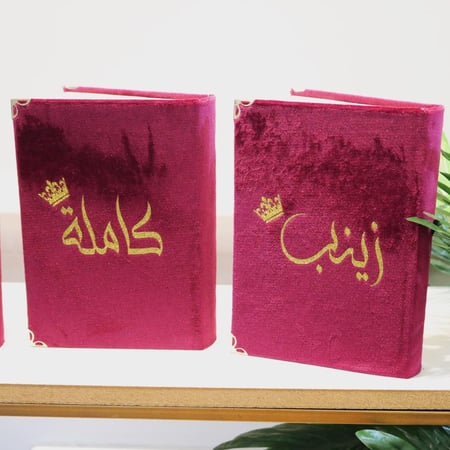 كاملة
زينب